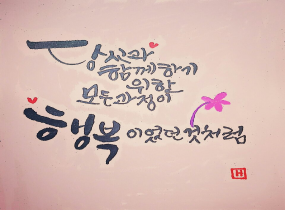 당신과
함께하기
위한
모든과정이
행복이었던것처럼
H